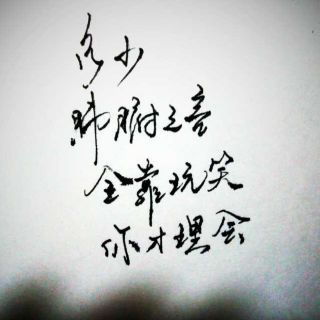 多少
肺腑之言
全靠玩笑
你才理会